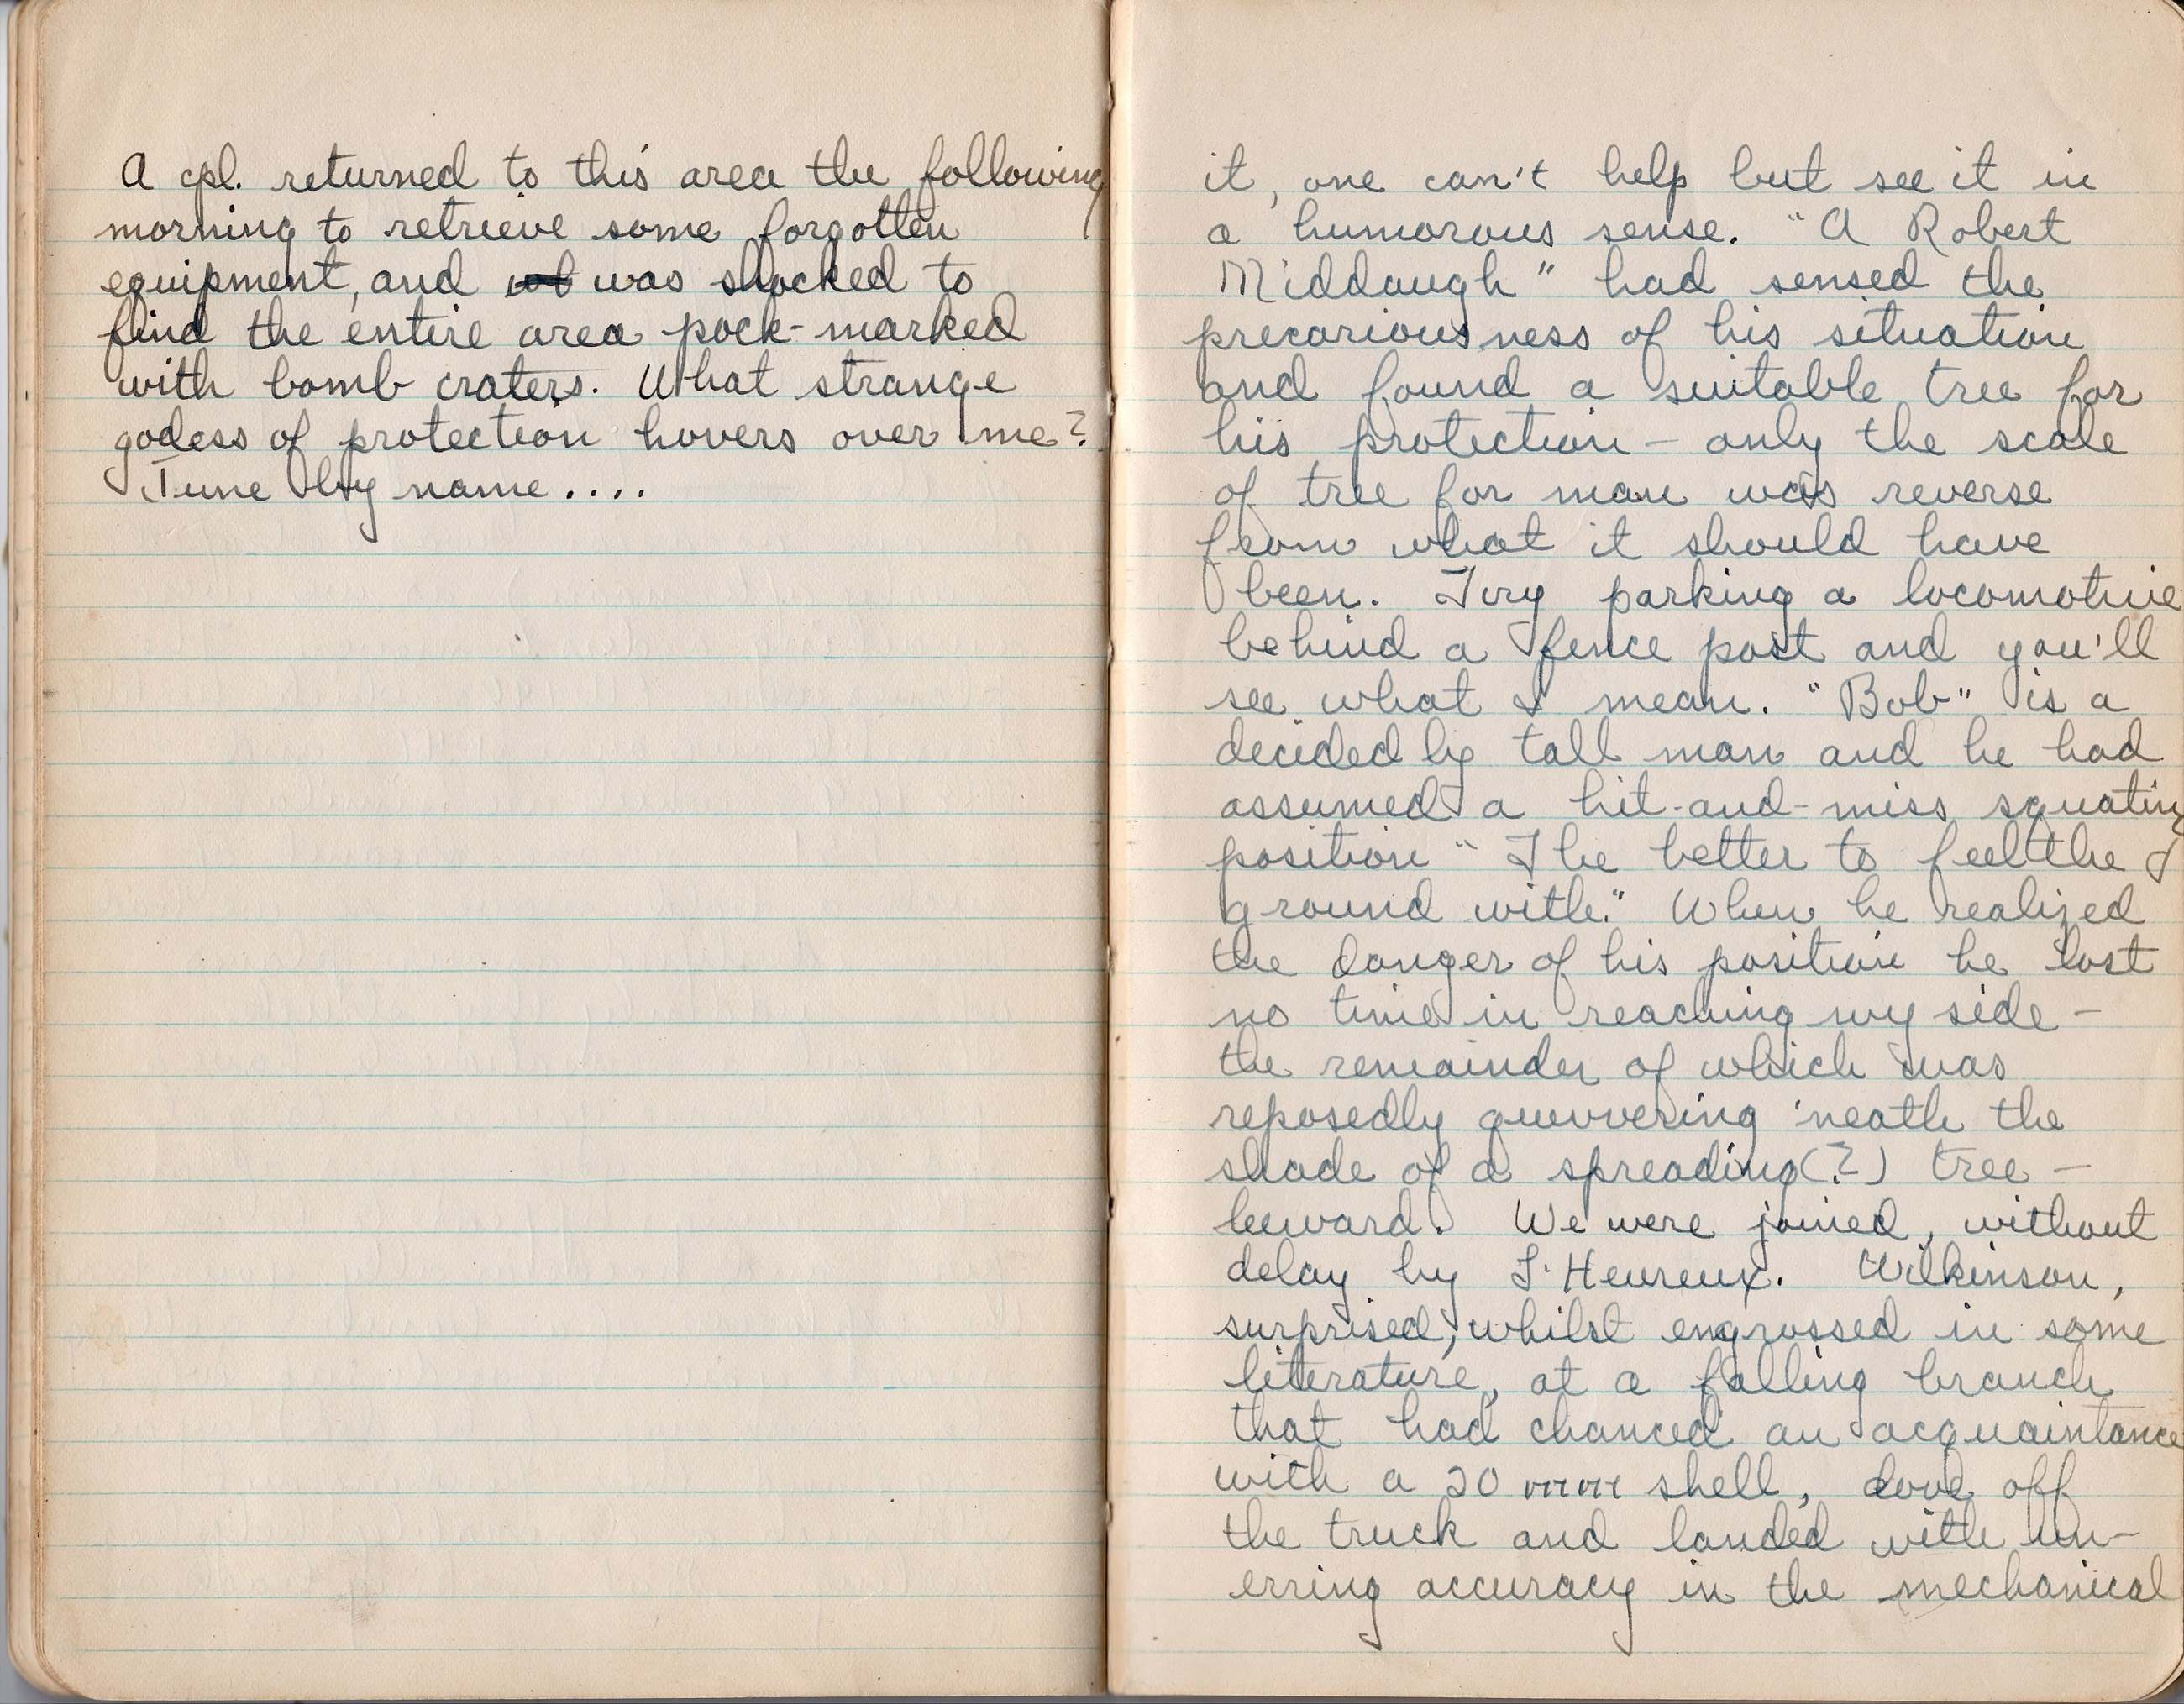 A cpl. returned to this area the following
morning to retrieve some forgotten
equipment, and was shocked to
find the entire area pock-marked
with bomb craters. What strange
godess of protection hovers over me?
June by name....
it, one can't help but see it in
a humorous sense. "A Robert
Middaugh" had sensed the
precariousness of his situation
and found a suitable tree for
his protection - only the scale
of tree for man was reverse
from what it should have
been. Try parking a locomotive
behind a fence post and you'll
see what I mean. "Bob" is a
decidedly tall man and he had
assumed a hit-and-miss squating
position "The better to feel the
ground with." When he realized
the danger of his position he lost
no time in reaching my side -
the remainder of which was
reposedly quivvering 'neath the
shade of a spreading(?) tree -
leeward. We were joined, without
delay by L'Heureux. Wilkinson,
surprised, whilst engrossed in some
literature, at a falling branch
that had chanced an acquaintance
with a 20 mm shell, dove off
the truck and landed with un-
erring accuracy in the mechanical